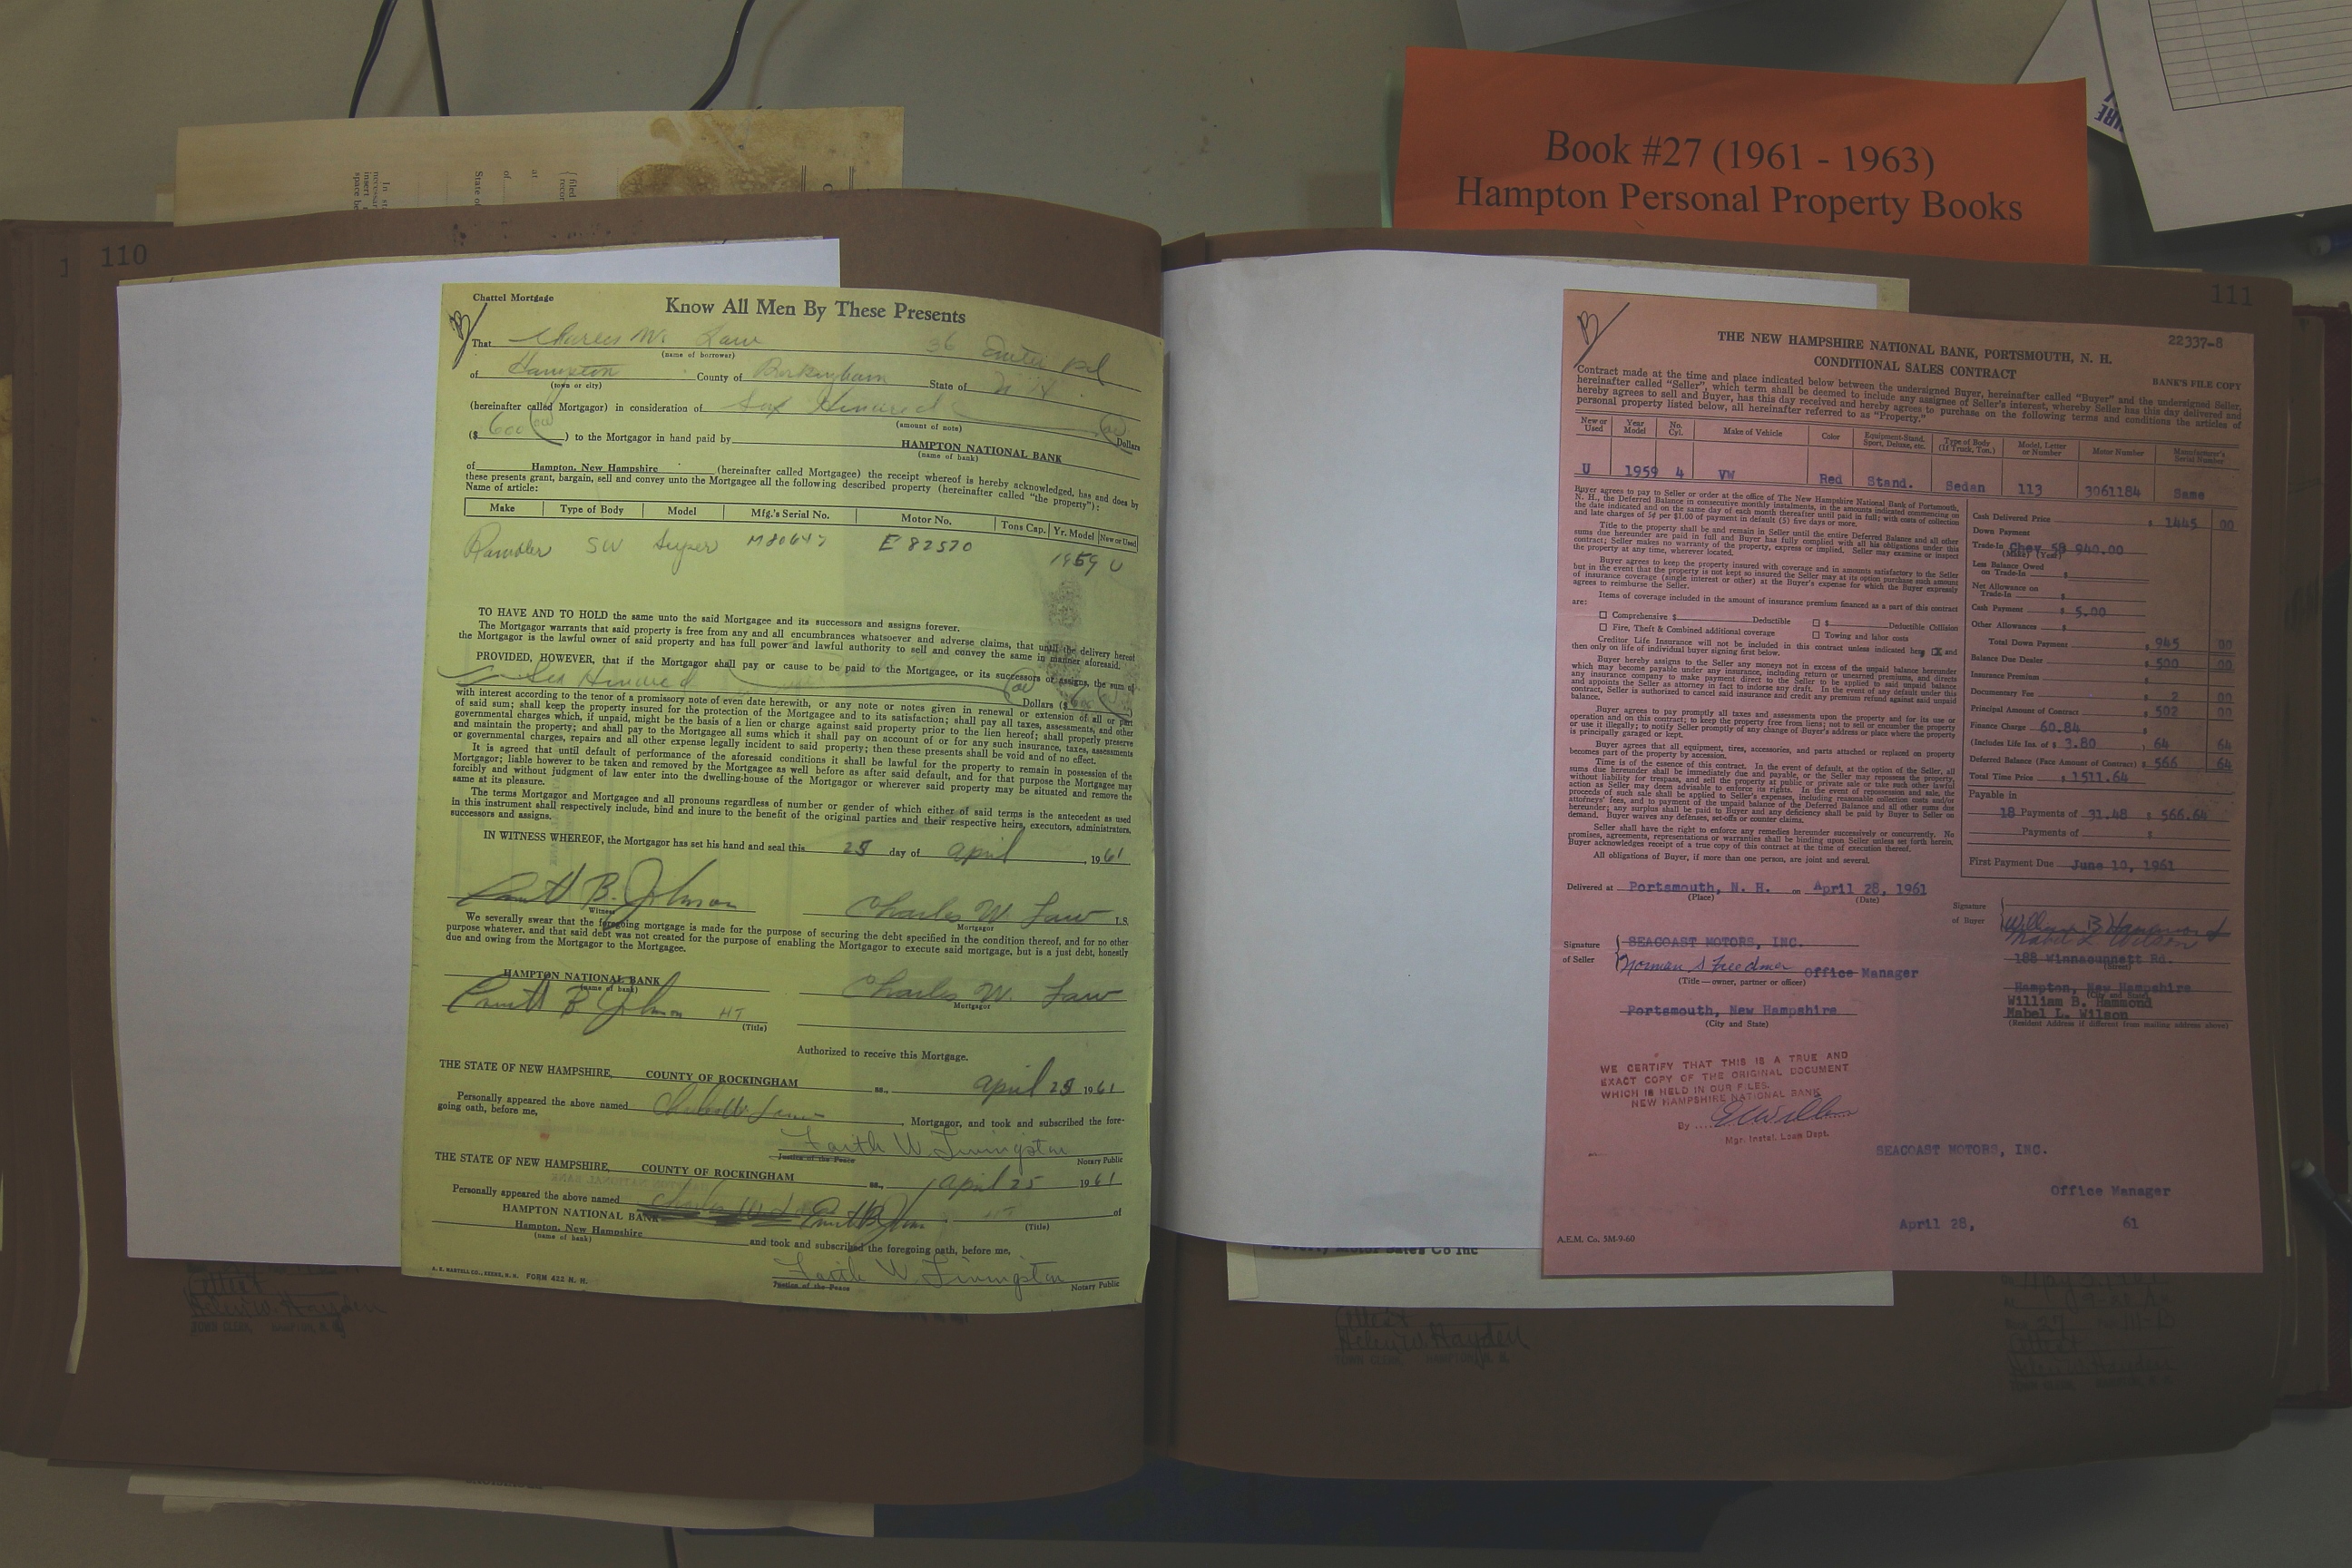 Book #27 (1961 - 1963)
Hampton Personal Property Books
110
Chattel Mortgage
Know All Men By These Presents
B
That Charles W. Law 36 Exeter Rd
(name of borrower)
of Hampton County of Rockingham State of N H
(town or city)
(hereinafter called Mortgagor) in consideration of Six Hundred
(amount of note) Dollars
($ 600 00 ) to the Mortgagor in hand paid by HAMPTON NATIONAL BANK
(name of bank)
of Hampton, New Hampshire (hereinafter called Mortgagee) the receipt whereof is hereby acknowledged, has and does by
these presents grant, bargain, sell and convey unto the Mortgagee all the following described property (hereinafter called "the property"):
Name of article:
Make Type of Body Model Mfg.'s Serial No. Motor No. Tons Cap. Yr. Model New or Used
Rambler SW Super M80647 E 82570 1959 U
TO HAVE AND TO HOLD the same unto the said Mortgagee and its successors and assigns forever.
The Mortgagor warrants that said property is free from any and all encumbrances whatsoever and adverse claims, that until the delivery hereof
the Mortgagor is the lawful owner of said property and has full power and lawful authority to sell and convey the same in manner aforesaid.
PROVIDED, HOWEVER, that if the Mortgagor shall pay or cause to be paid to the Mortgagee, or its successors or assigns, the sum of
Six Hundred Dollars ($ 600
with interest according to the tenor of a promissory note of even date herewith, or any note or notes given in renewal or extension of all or part
of said sum; shall keep the property insured for the protection of the Mortgagee and to its satisfaction; shall pay all taxes, assessments, and other
governmental charges which, if unpaid, might be the basis of a lien or charge against said property prior to the lien hereof; shall properly preserve
and maintain the property; and shall pay to the Mortgagee all sums which it shall pay on account of or for any such insurance, taxes, assessments
or governmental charges, repairs and all other expense legally incident to said property; then these presents shall be void and of no effect.
It is agreed that until default of performance of the aforesaid conditions it shall be lawful for the property to remain in possession of the
Mortgagor; liable however to be taken and removed by the Mortgagee as well before as after said default, and for that purpose the Mortgagee may
forcibly and without judgment of law enter into the dwelling-house of the Mortgagor or wherever said property may be situated and remove the
same at its pleasure.
The terms Mortgagor and Mortgagee and all pronouns regardless of number or gender of which either of said terms is the antecedent as used
in this instrument shall respectively include, bind and inure to the benefit of the original parties and their respective heirs, executors, administrators,
successors and assigns.
IN WITNESS WHEREOF, the Mortgagor has set his hand and seal this 25 day of April , 1961
B. Johnson Charles W. Law L.S.
Witness Mortgagor
We severally swear that the foregoing mortgage is made for the purpose of securing the debt specified in the condition thereof, and for no other
purpose whatever, and that said debt was not created for the purpose of enabling the Mortgagor to execute said mortgage, but is a just debt, honestly
due and owing from the Mortgagor to the Mortgagee.
HAMPTON NATIONAL BANK Charles W. Law
(name of bank) Mortgagor
B. Johnson
(Title)
Authorized to receive this Mortgage.
THE STATE OF NEW HAMPSHIRE, COUNTY OF ROCKINGHAM ss., April 25 1961
Personally appeared the above named Charles W. Law , Mortgagor, and took and subscribed the fore-
going oath, before me,
Faith W. Livingston
Justice of the Peace Notary Public
THE STATE OF NEW HAMPSHIRE, COUNTY OF ROCKINGHAM ss., April 25 1961
Personally appeared the above named of
HAMPTON NATIONAL BANK (Title)
Hampton, New Hampshire and took and subscribed the foregoing oath, before me,
(name of bank)
Faith W. Livingston
Justice of the Peace Notary Public
FORM 422 N. H.
Attest
Helen W. Hayden
TOWN CLERK
111
B
22337-8
THE NEW HAMPSHIRE NATIONAL BANK, PORTSMOUTH, N. H.
CONDITIONAL SALES CONTRACT
BANK'S FILE COPY
Contract made at the time and place indicated below between the undersigned Buyer, hereinafter called "Buyer" and the undersigned Seller,
hereinafter called "Seller", which term shall be deemed to include any assignee of Seller's interest, whereby Seller has this day delivered and
hereby agrees to sell and Buyer, has this day received and hereby agrees to purchase on the following terms and conditions the articles of
personal property listed below, all hereinafter referred to as "Property."
New or Used Year Model No. Cyl. Make of Vehicle Color Equipment-Stand. Sport, Deluxe, etc. Type of Body (If Truck, Ton.) Model, Letter or Number Motor Number Manufacturer's Serial Number
U 1959 4 VW Red Stand. Sedan 113 3061184 Same
Buyer agrees to pay to Seller or order at the office of The New Hampshire National Bank of Portsmouth,
N. H., the Deferred Balance in consecutive monthly instalments, in the amounts indicated commencing on
the date indicated and on the same day of each month thereafter until paid in full; with costs of collection
and late charges of 5¢ per $1.00 of payment in default (5) five days or more.
Title to the property shall be and remain in Seller until the entire Deferred Balance and all other
sums due hereunder are paid in full and Buyer has fully complied with all his obligations under this
contract; Seller makes no warranty of the property, express or implied. Seller may examine or inspect
the property at any time, wherever located.
Buyer agrees to keep the property insured with coverage and in amounts satisfactory to the Seller
but in the event that the property is not kept so insured the Seller may at its option purchase such amount
of insurance coverage (single interest or other) at the Buyer's expense for which the Buyer expressly
agrees to reimburse the Seller.
Items of coverage included in the amount of insurance premium financed as a part of this contract
are:
Comprehensive $ Deductible $ Deductible Collision
Fire, Theft & Combined additional coverage Towing and labor costs
Creditor Life Insurance will not be included in this contract unless indicated here X and
then only on life of individual buyer signing first below.
Buyer hereby assigns to the Seller any moneys not in excess of the unpaid balance hereunder
which may become payable under any insurance, including return or unearned premiums, and directs
any insurance company to make payment direct to the Seller to be applied to said unpaid balance
and appoints the Seller as attorney in fact to indorse any draft. In the event of any default under this
contract, Seller is authorized to cancel said insurance and credit any premium refund against said unpaid
balance.
Buyer agrees to pay promptly all taxes and assessments upon the property and for its use or
operation and on this contract; to keep the property free from liens; not to sell or encumber the property
or use it illegally; to notify Seller promptly of any change of Buyer's address or place where the property
is principally garaged or kept.
Buyer agrees that all equipment, tires, accessories, and parts attached or replaced on property
becomes part of the property by accession.
Time is of the essence of this contract. In the event of default, at the option of the Seller, all
sums due hereunder shall be immediately due and payable, or the Seller may repossess the property,
without liability for trespass, and sell the property at public or private sale or take such other lawful
action as Seller may deem advisable to enforce its rights. In the event of repossession and sale, the
proceeds of such sale shall be applied to Seller's expenses, including reasonable collection costs and/or
attorneys' fees, and to payment of the unpaid balance of the Deferred Balance and all other sums due
hereunder; any surplus shall be paid to Buyer and any deficiency shall be paid by Buyer to Seller on
demand. Buyer waives any defenses, set-offs or counter claims.
Seller shall have the right to enforce any remedies hereunder successively or concurrently. No
promises, agreements, representations or warranties shall be binding upon Seller unless set forth herein.
Buyer acknowledges receipt of a true copy of this contract at the time of execution thereof.
All obligations of Buyer, if more than one person, are joint and several.
Cash Delivered Price $ 1445 00
Down Payment
Trade-In Chev 53 940.00
(Make) (Year)
Less Balance Owed
on Trade-In $
Net Allowance on
Trade-In $
Cash Payment $ 5.00
Other Allowances $
Total Down Payment $ 945 00
Balance Due Dealer $ 500 00
Insurance Premium $
Documentary Fee $ 2 00
Principal Amount of Contract $ 502 00
Finance Charge 60.84 $
(Includes Life Ins. of $ 3.80 ) 64 64
Deferred Balance (Face Amount of Contract) $ 566 64
Total Time Price $ 1511.64
Payable in
18 Payments of 31.48 $ 566.64
Payments of $
First Payment Due June 10, 1961
Delivered at Portsmouth, N. H. on April 28, 1961
(Place) (Date)
Signature of Seller SEACOAST MOTORS, INC.
Norman S Freedman Office Manager
(Title—owner, partner or officer)
Portsmouth, New Hampshire
(City and State)
Signature of Buyer William B Hammond
Mabel L Wilson
188 Winnacunnett Rd.
(Street)
Hampton, New Hampshire
(City and State)
William B. Hammond
Mabel L. Wilson
(Resident Address if different from mailing address above)
WE CERTIFY THAT THIS IS A TRUE AND
EXACT COPY OF THE ORIGINAL DOCUMENT
WHICH IS HELD IN OUR FILES.
NEW HAMPSHIRE NATIONAL BANK
By
Mgr. Instal. Loan Dept.
SEACOAST MOTORS, INC.
Office Manager
April 28, 61
A.E.M. Co. 5M-9-60
Attest
Helen W. Hayden
TOWN CLERK HAMPTON, N. H.
Attest
Helen W. Hayden